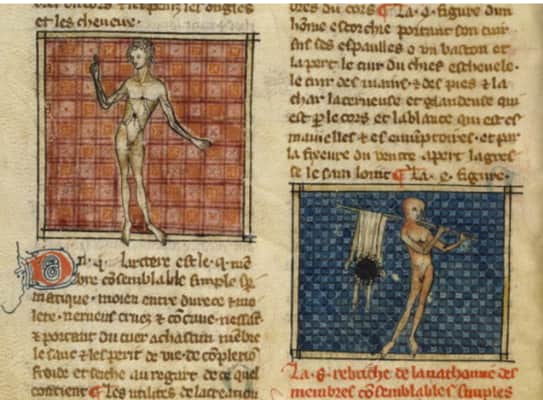 et les cheveux.
artere est le .q. me
bre cōsemblable simple sp
matique. moien entre durece & mo
lece. nerueus cruez & cōcaue. nessāt
& portant du cuer a chascun mēbre
le sanc & lesperit de vie. de cōplexiō
froide et seiche au regart de ce quel
contient ¶ les utilites de la creatiō
bres du cors ¶ La .q. figure dun
home escorchie portant son cuir
sus ses espaulles o un baston et
la pert le cuir du chief escheuele.
le cuir des mains. & des pies & la
char lacerteuse et glandeuse qui
est p̱ le cors et la blance qui est es
mamelles & es emūptoires. et par
la fixeure du ventre apert la gres
se le sain loint ¶ La .e. figure.
La .8. rebriche de lanathomie des
membres cōsemblables simples